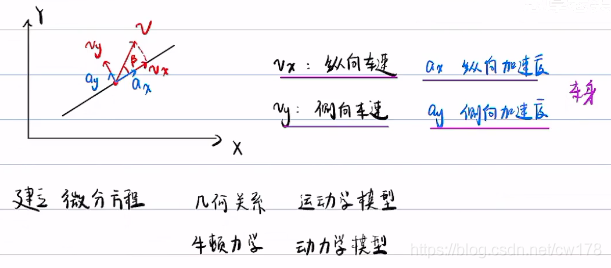 Y
v
vy
β
vx
ay
ax
X
vx: 纵向车速 ax 纵向加速度
vy: 侧向车速 ay 侧向加速度
车身
建立 微分方程 几何关系 运动学模型
牛顿力学 动力学模型
https://blog.csdn.net/cw178